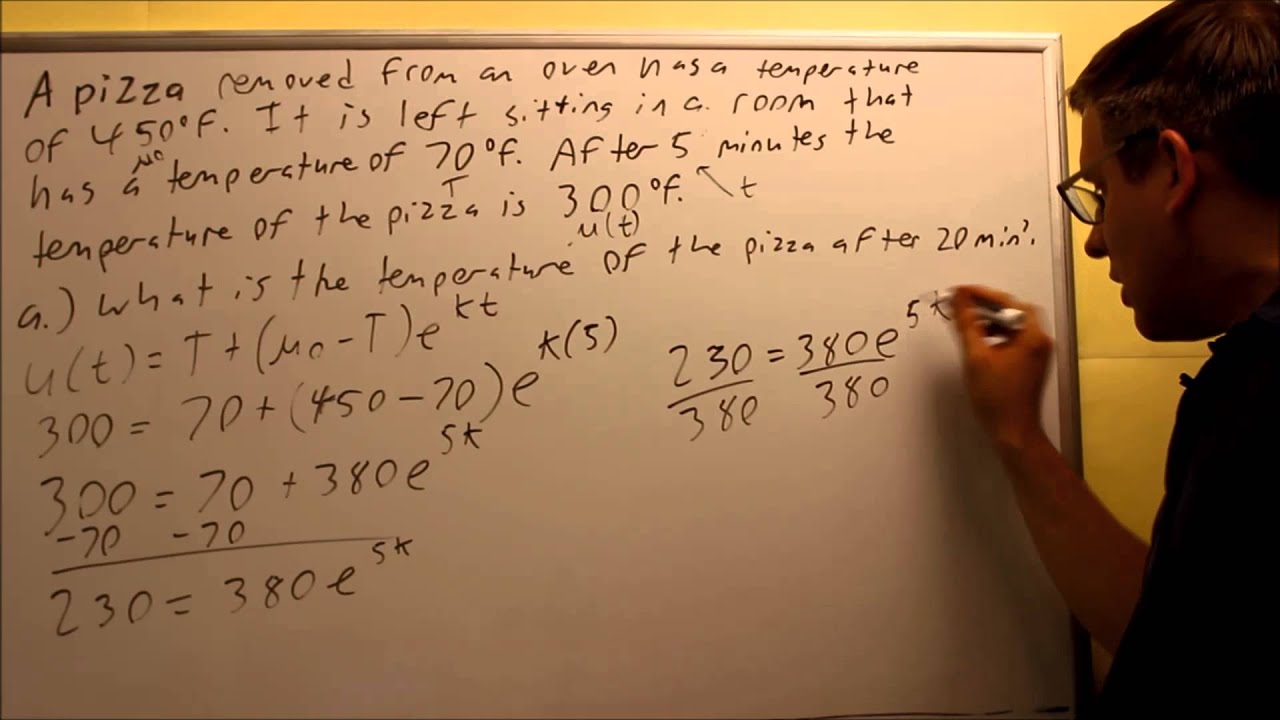 A pizza removed from an oven has a temperature
of 450°F. It is left sitting in a room that
μ₀
has a temperature of 70°F. After 5 minutes the
T
t
temperature of the pizza is 300°F.
u(t)
a.) What is the temperature of the pizza after 20 min?
u(t) = T + (μ₀ - T) e^kt
300 = 70 + (450 - 70) e^k(5)
300 = 70 + 380e^5k
-70 -70
230 = 380e^5k
230 = 380e^5k
380 380